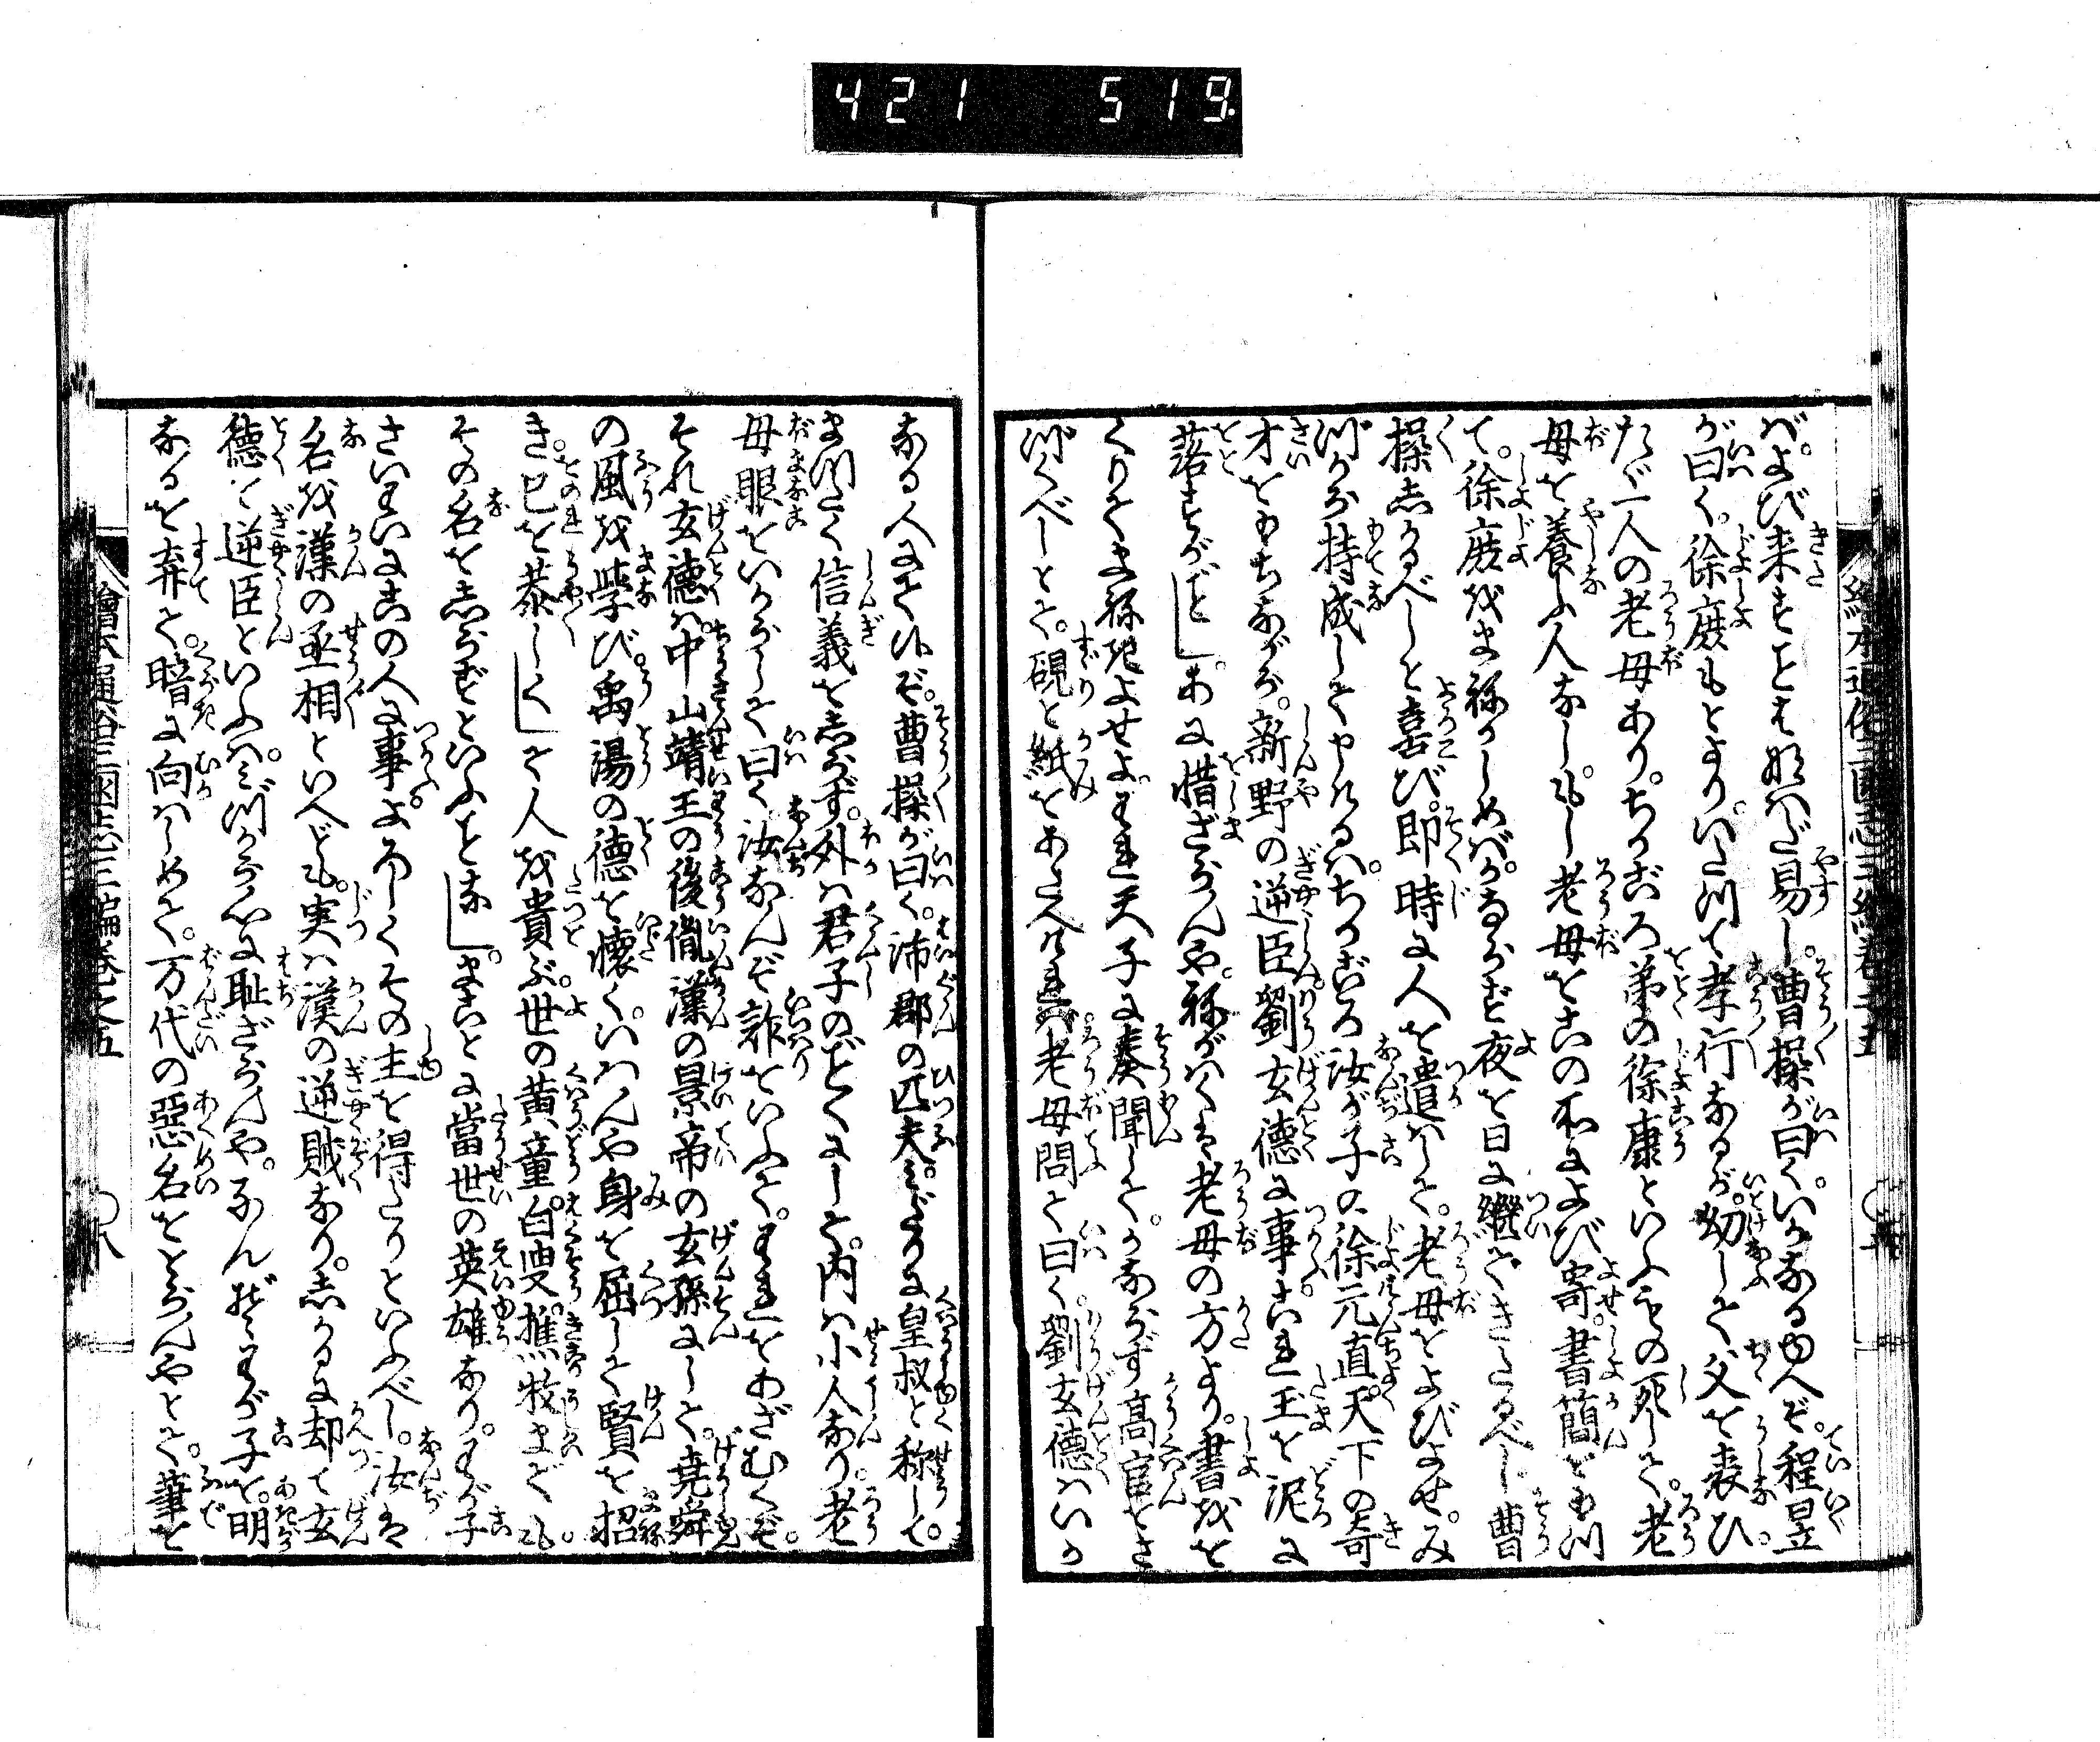 421 519
ば。よび来すことは好はだ易し。曹操が曰く。いかなるゆへぞ。程昱
が曰く。徐庶もとより。いたつて孝行なるが。幼して父を喪ひ。
たゞ一人の老母あり。ちかごろ弟の徐康といふもの死して。老
母を養ふ人なし。もし老母をこの所によび寄。書簡をもつ
て。徐庶をまねかしめば。かならず夜を日に継できたるべし。曹
操しかるべしと喜び。即時に人を遣はして。老母をよびよせ。み
づから持成してやれるは。ちかごろ汝が子の徐元直。天下の奇
才をもちながら。新野の逆臣劉玄徳に事。これ玉を泥に
落すがごとし。あに惜ざらんや。ねがはくは老母の方より。書を
くりてまねきよせよ。われ天子に奏聞して。かならず高官をさ
づくべしとて。硯と紙をあたへければ。老母問て曰く。劉玄徳はいか
なる人にて候ぞ。曹操が曰く。沛郡の匹夫。みだりに皇叔と称して。
まつたく信義をしらず。外は君子のごとくにして。内は小人なり。老
母眼をいからして曰く。汝なんぞ詐をいふて。われをあざむくぞ。
それ玄徳は。中山靖王の後胤漢の景帝の玄孫にして。堯舜
の風を学び。禹湯の徳を懐く。いはんや身を屈して賢を招
き。己を恭しくして人を貴ぶ。世の黄童。白叟。樵牧までも。
その名をしらずといふことなし。まことに當世の英雄なり。わが子
さいわいにこの人に事。よろしくその主を得たりといふべし。汝は
名を漢の丞相といへども。実は漢の逆賊なり。しかるに却て玄
徳を逆臣といふは。みづから心に恥ざらんや。なんぞわが子を。明
なるを弃て。暗に向はしめて。万代の惡名をとらんやとて。筆を
繪本通俗三國志三編巻之五
八